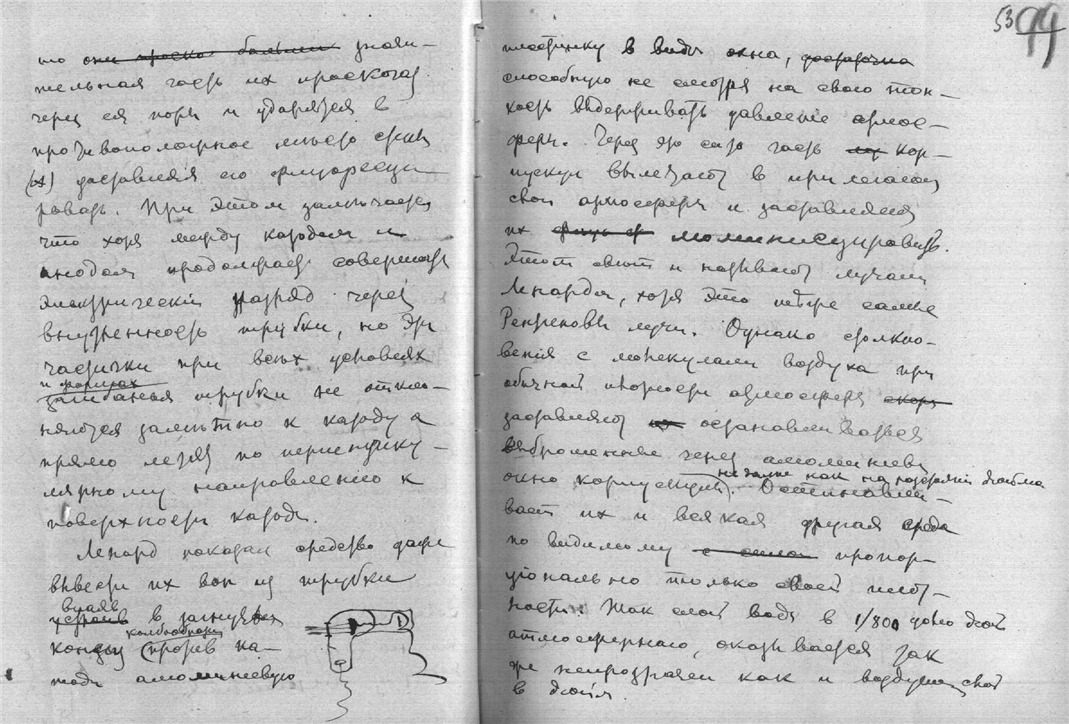 то они проскоч большим значи-
тельная часть их проскочат
через ея поры и ударятся в
противоположное место стен
заставляя его флуоресци-
ровать. При этом замечается
что хотя между катодом и
анодом продолжает совершать
электрический разряд через
внутренность трубки, но эти
частички при всех условиях
и формах
загибанья трубки не откло-
няются заметно к катоду а
прямо летят по перпендику-
лярному направлению к
поверхности катода.
Ленард показал средство даже
вывести их вон из трубки
вделав
устроив в загнутых
колбообразн
концах (против ка-
тода алюминевую
53 99
пластинку в виде окна, достаточно
способную не смотря на свою тон-
кость выдерживать давление атмос-
феры. Через это окно часть их кор-
пускул вылетает в прилегающ
слой атмосферы и заставляет
их люминисцировать.
Этот свет и называют лучами
Ленарда, хотя это те же самые
Рентгеновы лучи. Однако столкно-
вения с молекулами воздуха при
обычной плотности атмосферы скоро
заставляют останавливаться
выброшенные через алюминиев
не далее как на потерянии дюйма
окно корпускулы. Останавли-
вает их и всякая другая среда
по видимому с силой пропор-
ционально только своей плот-
ности. Так слой воды в 1/800 долю дюйм
атмосфернаго, оказывается так
же непрозрачен как и воздушный слой
в дюйм.